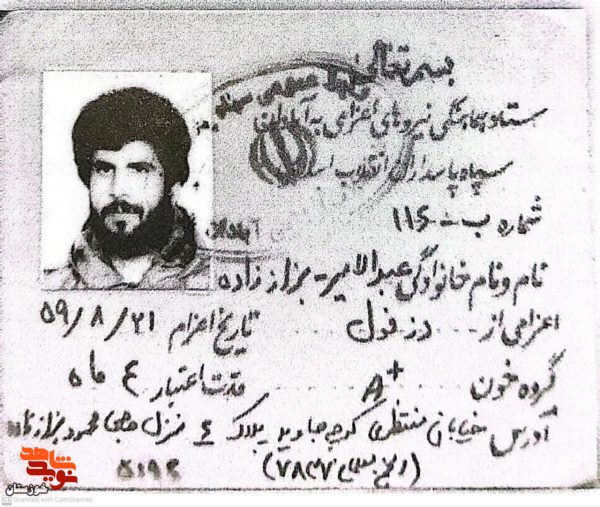 بسمه تعالی
ستاد هماهنگی نیروهای اعزامی به آبادان
سپاه پاسداران انقلاب
شماره ب - ۱۱۶۰
نام و نام خانوادگی عبدالامیر - بزاززاده
اعزامی از .... دزفول .... تاریخ اعزام ۵۹/۸/۲۱
گروه خون .... A+ .... مدت اعتبار ۴ ماه
آدرس خیابان منتظری کوچه جاوید پلاک ۶ منزل حاجی محمود بزاززاده
نوید شاهد
خوزستان
CS Scanned with CamScanner